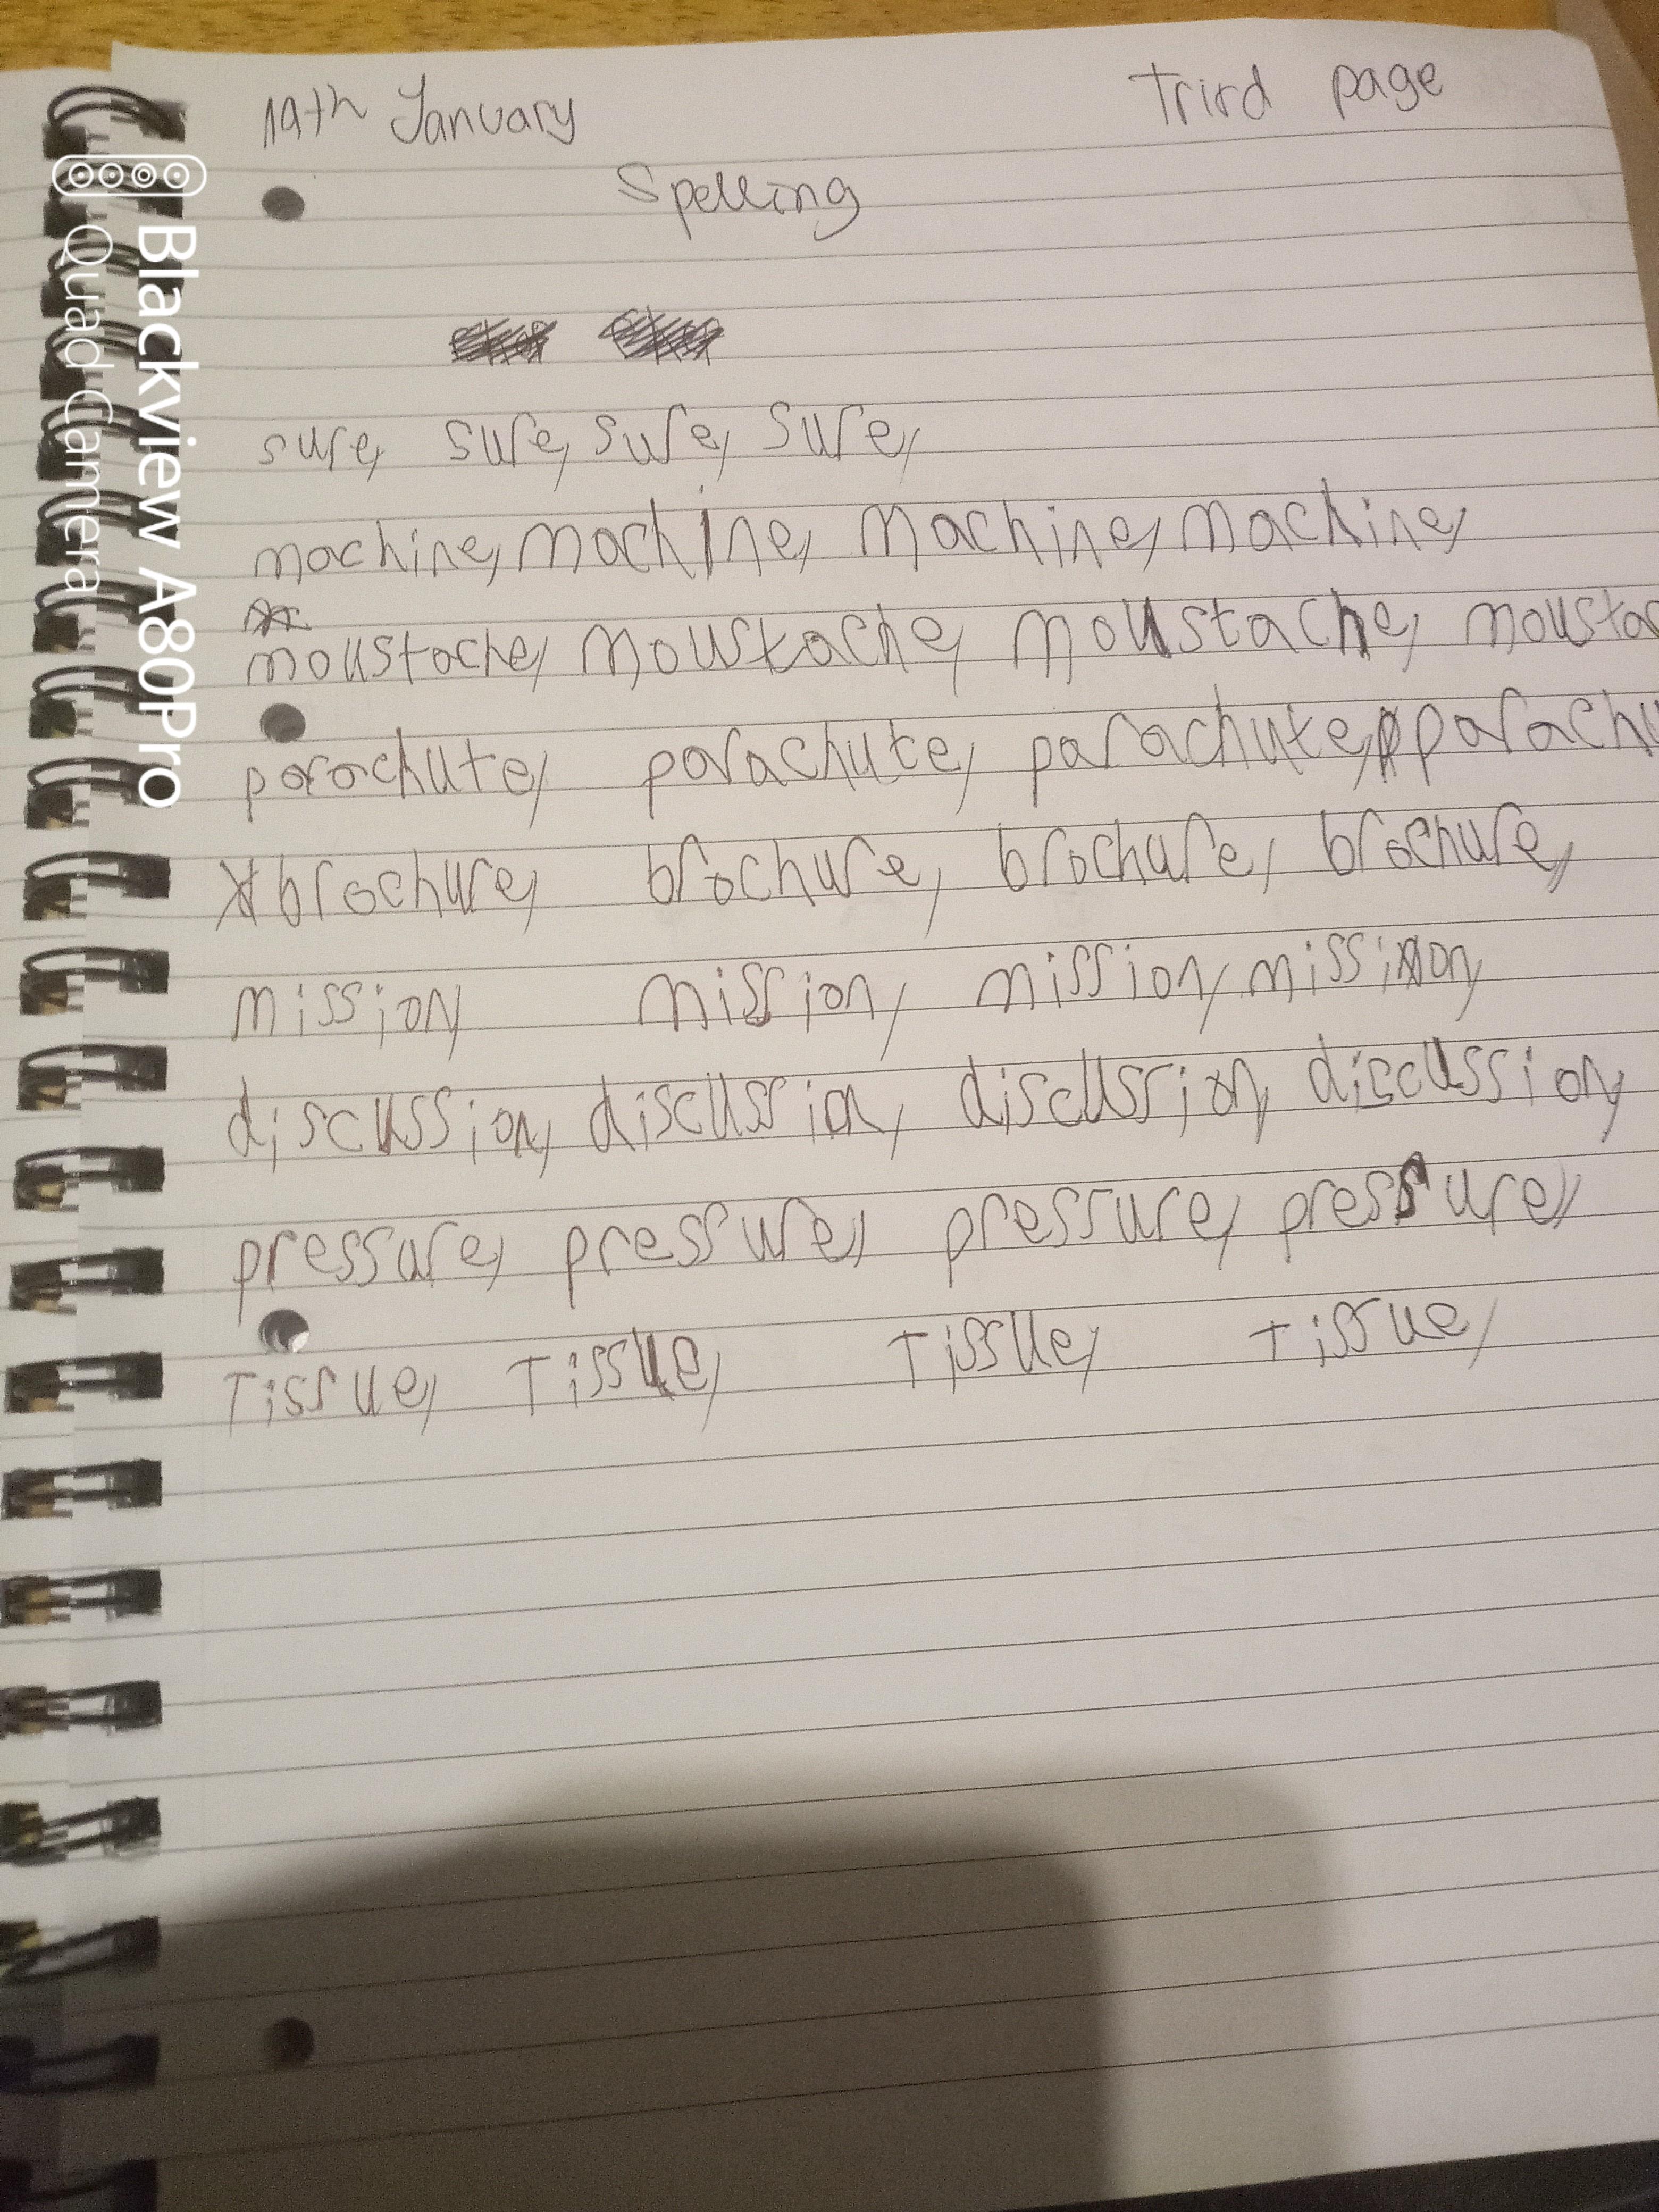 19th January Trird page
Spelling
sure, sure, sure, sure,
machine, machine, machine, machine,
moustache, moustache, moustache, moustac
parachute, parachute, parachute, parachu
brochure, brochure, brochure, brochure,
mission, mission, mission, mission,
discussion, discussion, discussion, discussion,
pressure, pressure, pressure, pressure,
Tissue, Tissue, Tissue, Tissue,
Blackview A80Pro
Quad Camera